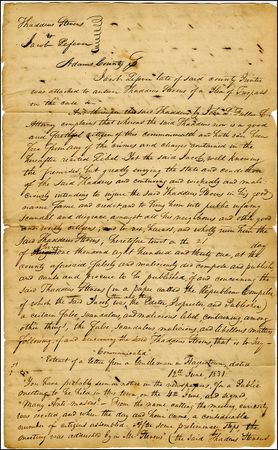 Thaddeus Stevens
vs
Jacob Lefever
Adams County Ss
Jacob Lefever late of said county Printer
was attached to answer Thaddeus Stevens of a Plea of Trespass
on the case &c.
And thereupon the said Thaddeus by John D. Fuller his
Attorney complains that whereas the said Thaddeus now is a good
and faithful citizen of this commonwealth and hath ever been
free from any of the crimes and charges contained in the
hereafter recited Libel Yet the said Jacob well knowing
the premises, but greatly envying the state and condition
of the said Thaddeus and contriving and wickedly and mali-
ciously intending to injure the said Thaddeus Stevens in his good
name fame and credit and to bring him into public infamy
scandal and disgrace amongst all his neighbours and other good
and worthy citizens and to vex, harass, and wholly ruin him the
said Thaddeus Stevens, heretofore to wit on the 21 day
of June one thousand eight hundred and thirty one, at the
county aforesaid falsely and maliciously did compose and publish
and cause and procure to be published of and concerning the
said Thaddeus Stevens (in a paper called the Republican Compiler,
of which the said Jacob was the Editor, Proprietor, and Publisher)
a certain false scandalous, and malicious libel containing among
other things, the false scandalous, malicious, and libellous matter
following of and concerning the said Thaddeus Stevens that is to say
Communicated
"Extract of a letter from a Gentleman in Hagerstown, dated
18th June 1831.
You have probably seen a notice in the newspapers, of a Public
meeting to be held in this town on the 18th June, and signed
"Many Anti-masons". From the name nothing the meeting curiosity
was excited, and when the day and hour came, a considerable
number of citizens assembled. After some preliminary steps the
meeting was addressed by a Mr Stevens (the said Thaddeus Stevens